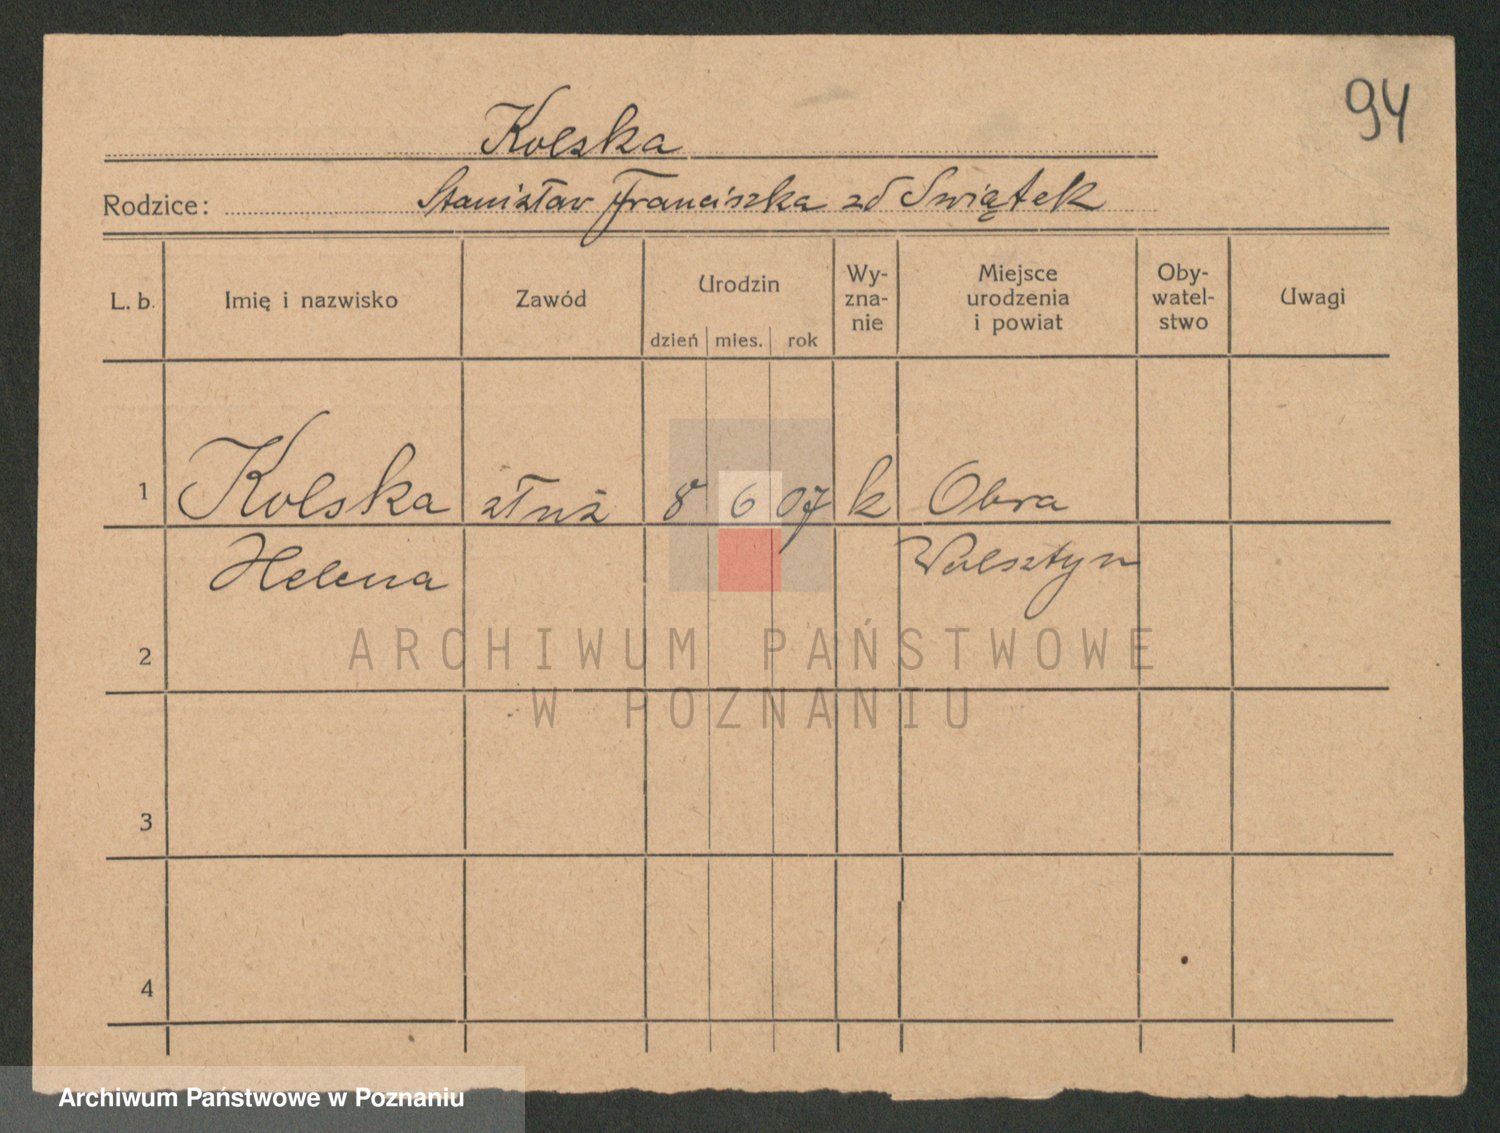 94
Kolska
Rodzice: Stanisław Franciszka zd Swiątek
L. b. Imię i nazwisko Zawód Urodzin Wy-zna-nie Miejsce urodzenia i powiat Oby-watel-stwo Uwagi
dzień mies. rok
1 Kolska służ 8 6 07 k Obra
Helena Wolsztyn
2
ARCHIWUM PAŃSTWOWE
W POZNANIU
3
4
Archiwum Państwowe w Poznaniu